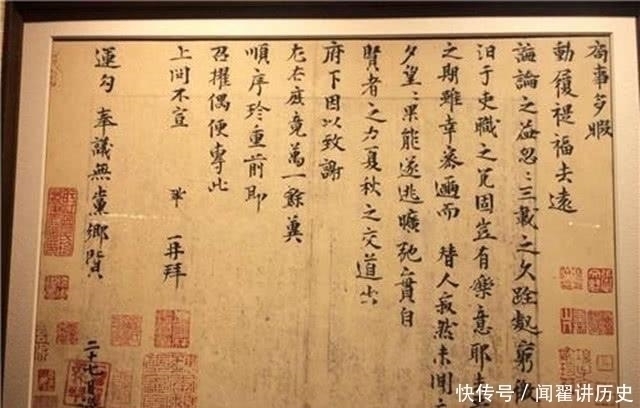 局事多暇
動履禔福去遠
誨論之益忽〻三載之久跧處窮
汩于吏職之冗固豈有樂意耶去
之期雖幸密邇而替人寂然未聞
夕望〻果能遂逃曠弛實自
賢者之力夏秋之交道出
府下因以致謝
左右庶竟萬一餘冀
順序珍重前即
召擢偶便專此
上問不宣 鞏再拜
運勾奉議無黨鄉賢
二十七日
快传号／闻翟讲历史